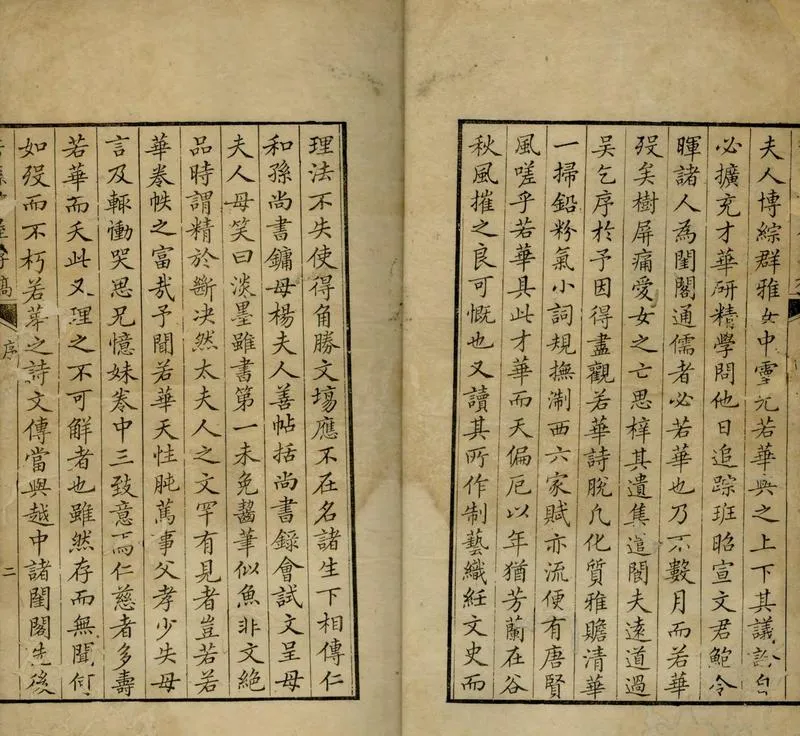 夫人博綜群雅女中雪兀若華與之上下其議論自
必擴充才華研精學問他日追踪班昭宣文君鮑令
暉諸人為閨閣通儒者必若華也乃不數月而若華
歿矣樹屏痛愛女之亡思梓其遺集遣閽夫遠道過
吳乞序於予因得盡觀若華詩脫凡化質雅贍清華
一掃鉛粉氣小詞規撫淛西六家賦亦流便有唐賢
風嗟乎若華具此才華而天偏厄以年猶芳蘭在谷
秋風摧之良可慨也又讀其所作制藝織絍文史而
理法不失使得角勝文塲應不在名諸生下相傳仁
和孫尚書鏞母楊夫人善帖括尚書錄會試文呈母
夫人母笑曰淡墨雖書第一未免醬筆似魚非文絕
品時謂精於斷決然太夫人之文罕有見者豈若若
華卷帙之富哉予聞若華天性肫篤事父孝少失母
言及輒慟哭思兄憶妹卷中三致意焉仁慈者多壽
若華而夭此又理之不可解者也雖然存而無聞何
如歿而不朽若華之詩文傳當與越中諸閨閣先後
序
二